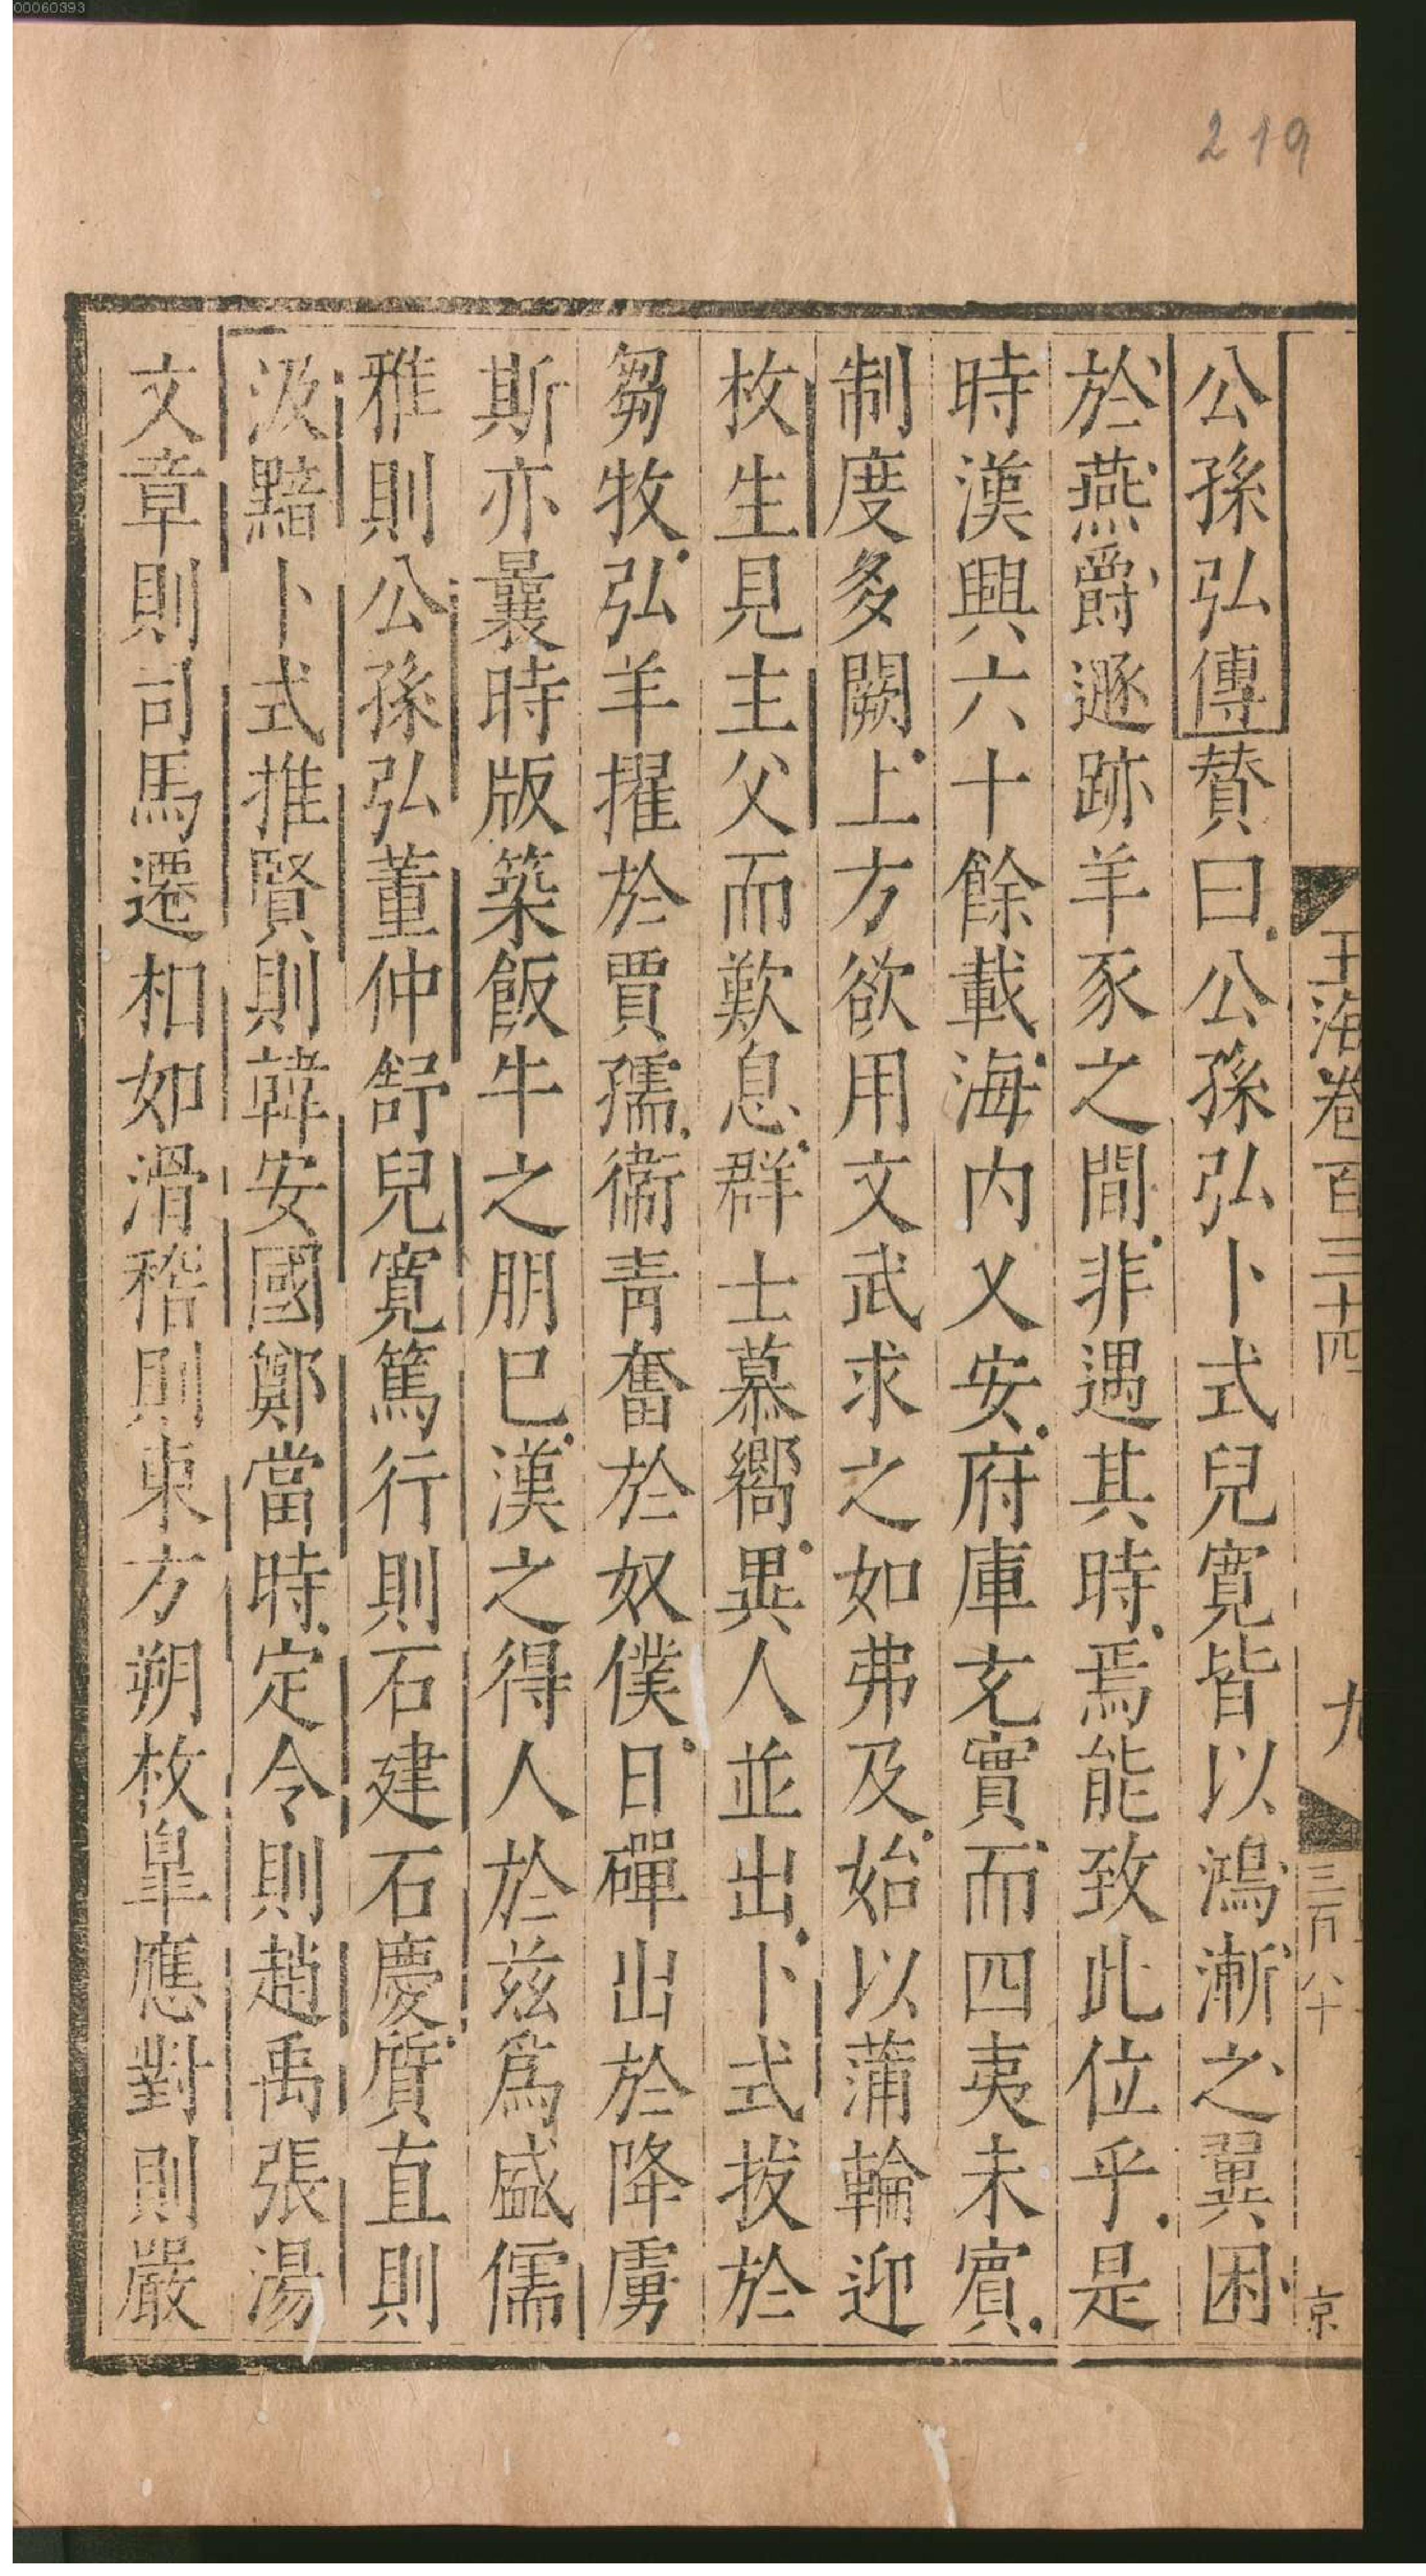 00060393
219
玉海卷百三十四
九
三百八十
京
公孫弘傳贊曰公孫弘卜式兒寬皆以鴻漸之翼困
於燕爵遯跡羊豕之間非遇其時焉能致此位乎是
時漢興六十餘載海内乂安府庫充實而四夷未賓
制度多闕上方欲用文武求之如弗及始以蒲輪迎
枚生見主父而歎息群士慕嚮異人並出卜式拔於
芻牧弘羊擢於賈孺衞青奮於奴僕日磾出於降虜
斯亦曩時版築飯牛之朋已漢之得人於兹爲盛儒
雅則公孫弘董仲舒兒寬篤行則石建石慶質直則
汲黯卜式推賢則韓安國鄭當時定令則趙禹張湯
文章則司馬遷相如滑稽則東方朔枚皐應對則嚴